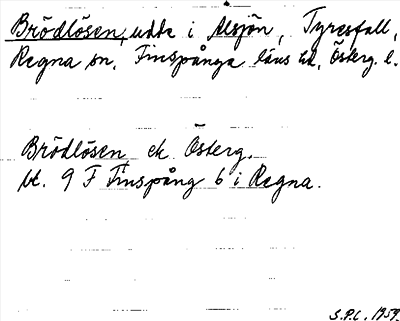 Brödlösen, udde i Alsjön, Tyresfall,
Regna sn, Finspånga läns hd, Österg. l.
Brödlösen ek Österg.
bl. 9 F Finspång 6 i Regna.
S.P.L. 1959.